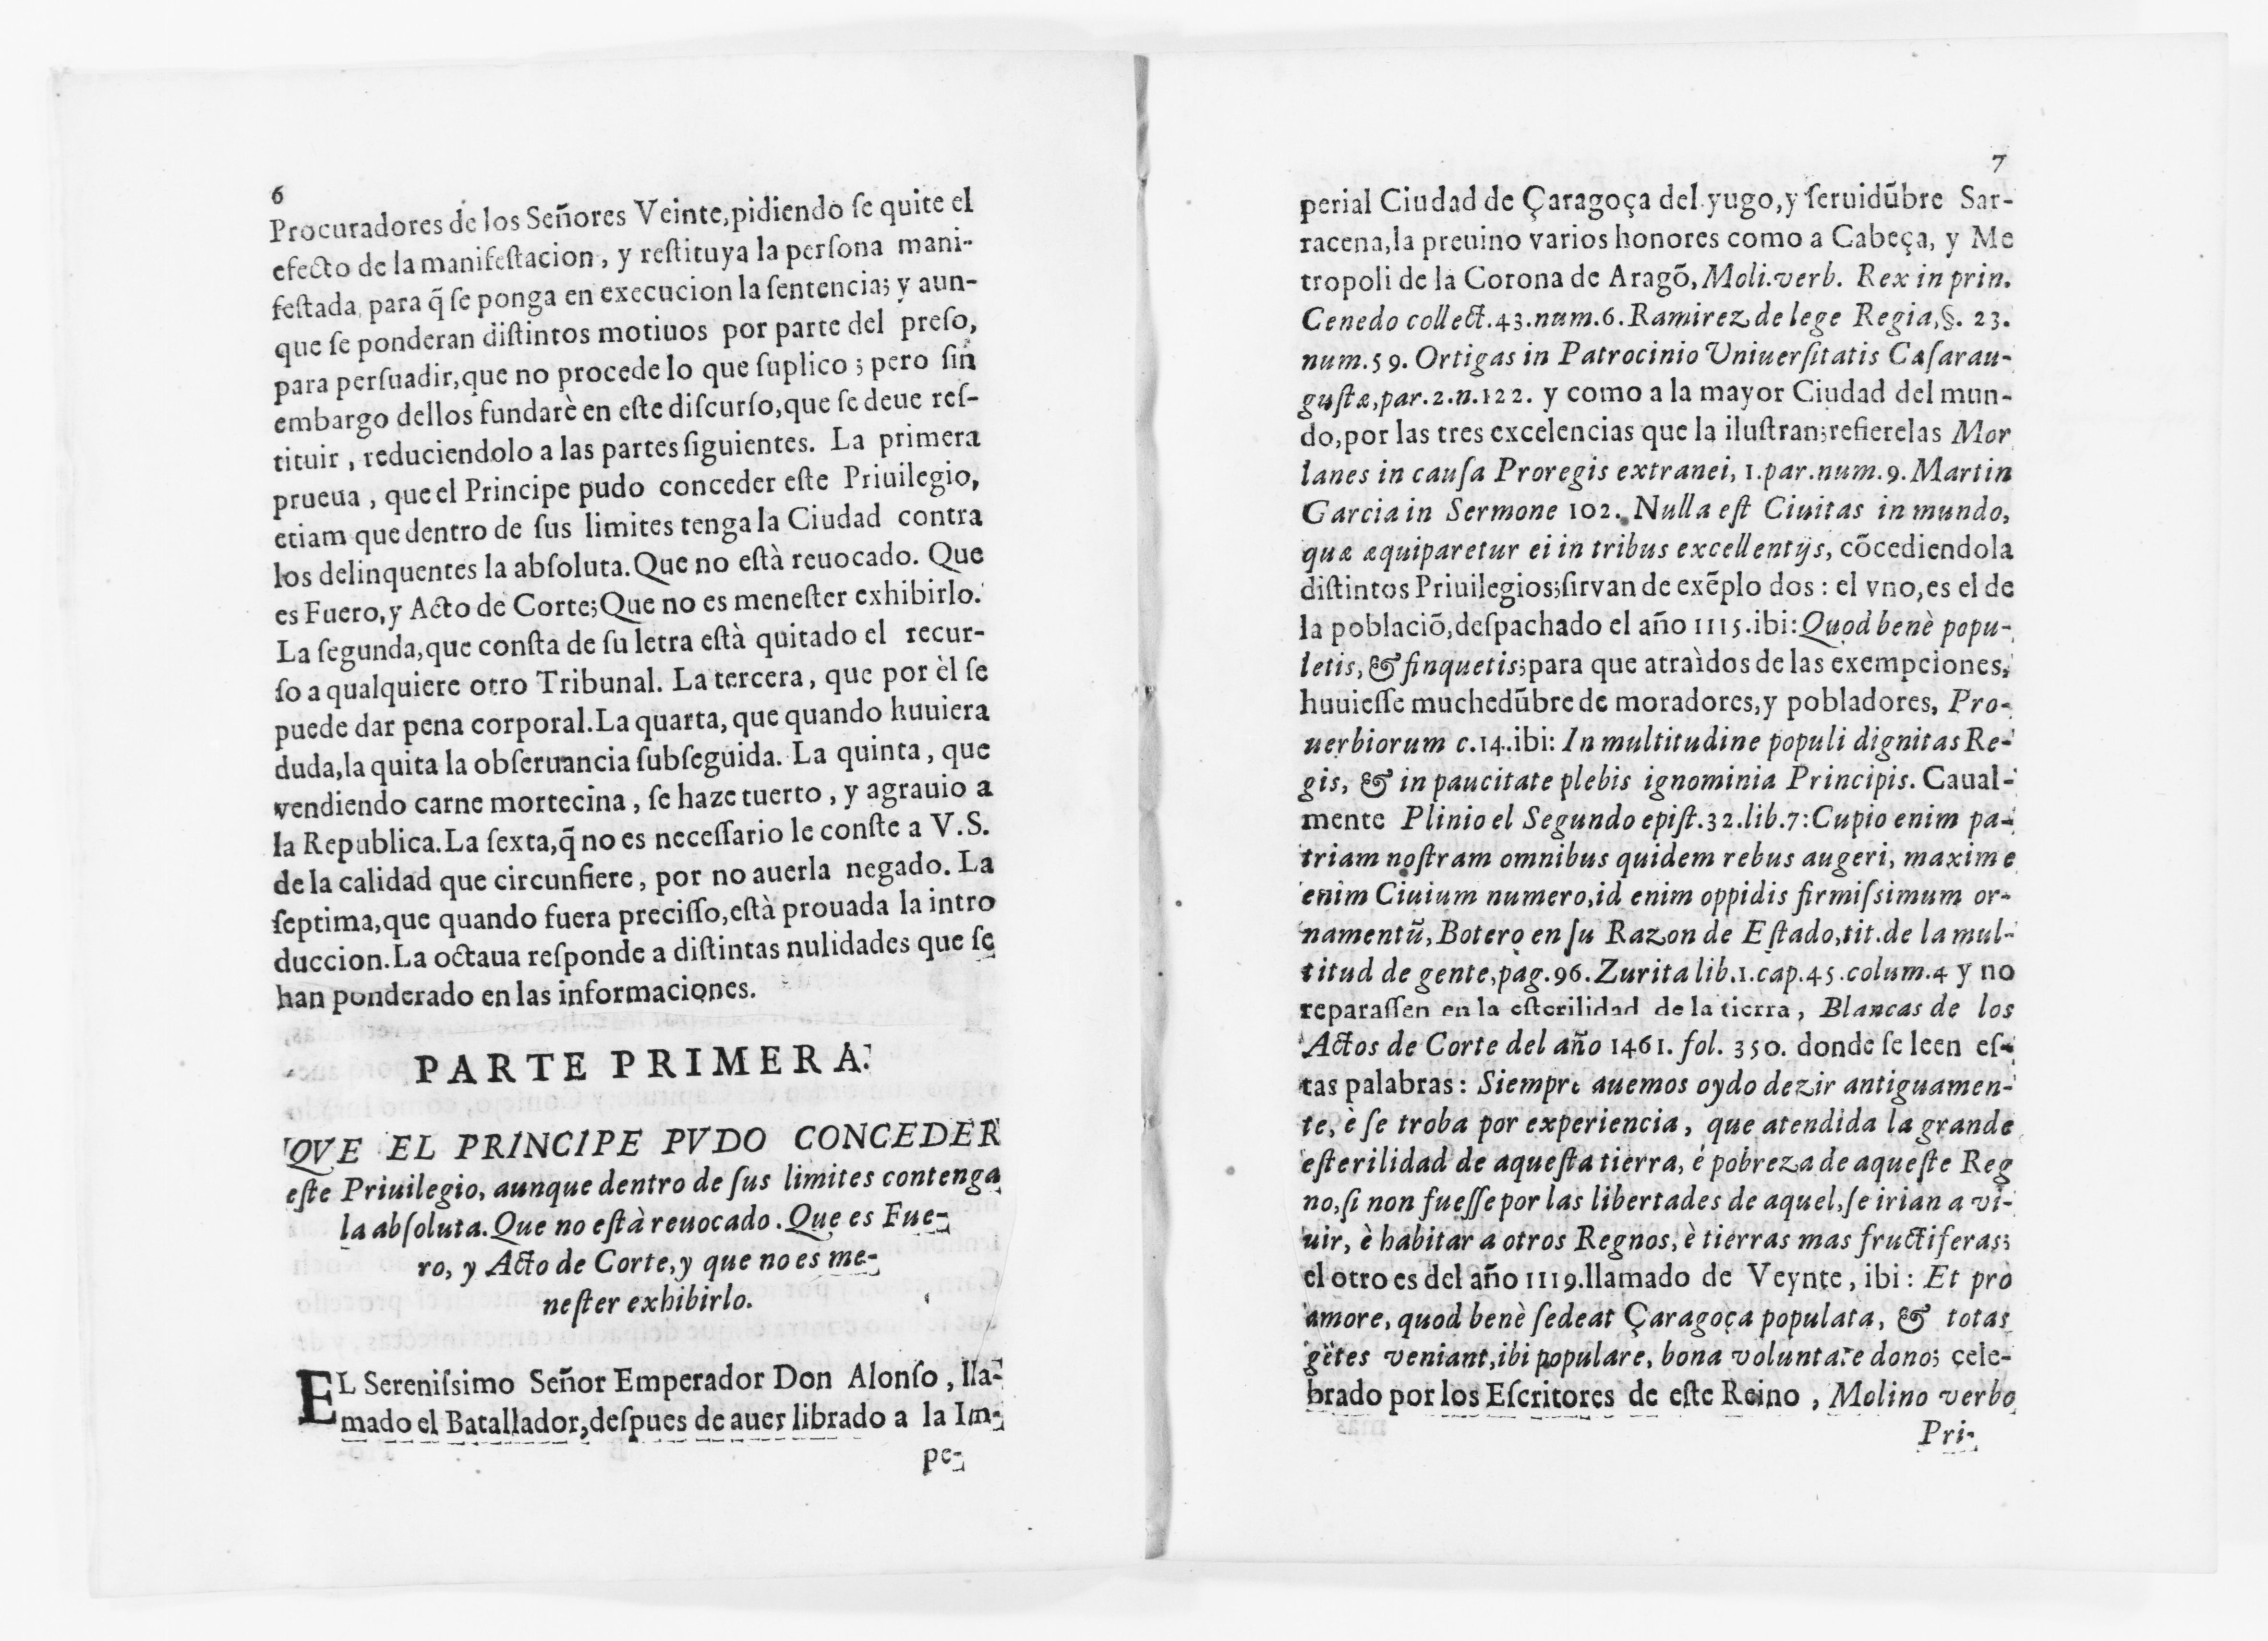 6
Procuradores de los Señores Veinte,pidiendo ſe quite el
efecto de la manifeſtacion, y reſtituya la perſona mani-
feſtada, para q̃ ſe ponga en execucion la ſentencia; y aun-
que ſe ponderan diſtintos motiuos por parte del preſo,
para perſuadir,que no procede lo que ſuplico; pero ſin
embargo dellos fundarè en eſte diſcurſo,que ſe deue reſ-
tituir, reduciendolo a las partes ſiguientes. La primera
prueua, que el Principe pudo conceder eſte Priuilegio,
etiam que dentro de ſus limites tenga la Ciudad contra
los delinquentes la abſoluta. Que no eſtà reuocado. Que
es Fuero,y Acto de Corte;Que no es meneſter exhibirlo.
La ſegunda,que conſta de ſu letra eſtà quitado el recur-
ſo a qualquiere otro Tribunal. La tercera, que por èl ſe
puede dar pena corporal.La quarta, que quando huuiera
duda,la quita la obſeruancia ſubſeguida. La quinta, que
vendiendo carne mortecina, ſe haze tuerto, y agrauio a
la Republica.La ſexta,q̃ no es neceſſario le conſte a V.S.
de la calidad que circunfiere, por no auerla negado. La
ſeptima,que quando fuera preciſſo,eſtà prouada la intro
duccion.La octaua reſponde a diſtintas nulidades que ſe
han ponderado en las informaciones.
PARTE PRIMERA.
QVE EL PRINCIPE PVDO CONCEDER
eſte Priuilegio, aunque dentro de ſus limites contenga
la abſoluta. Que no eſtà reuocado. Que es Fue-
ro, y Acto de Corte,y que no es me-
neſter exhibirlo.
EL Sereniſsimo Señor Emperador Don Alonſo, lla-
mado el Batallador,deſpues de auer librado a la Im-
pe-
7
perial Ciudad de Çaragoça del yugo,y ſeruidũbre Sar-
racena,la preuino varios honores como a Cabeça, y Me
tropoli de la Corona de Aragõ, Moli.verb. Rex in prin.
Cenedo collect.43.num.6.Ramirez de lege Regia,§. 23.
num.59. Ortigas in Patrocinio Vniuerſitatis Cæſarau-
guſtæ,par.2.n.122. y como a la mayor Ciudad del mun-
do,por las tres excelencias que la iluſtran;refierelas Mor
lanes in cauſa Proregis extranei, 1.par.num.9.Martin
Garcia in Sermone 102. Nulla eſt Ciuitas in mundo,
quæ æquiparetur ei in tribus excellentijs, cõcediendola
diſtintos Priuilegios;ſirvan de exẽplo dos: el vno,es el de
la poblaciõ,deſpachado el año 1115.ibi:Quod benè popu-
letis, & finquetis;para que atraìdos de las exempciones,
huuieſſe muchedũbre de moradores,y pobladores, Pro-
uerbiorum c.14.ibi: In multitudine populi dignitas Re-
gis, & in paucitate plebis ignominia Principis. Caual-
mente Plinio el Segundo epiſt.32.lib.7:Cupio enim pa-
triam noſtram omnibus quidem rebus augeri, maxime
enim Ciuium numero,id enim oppidis firmiſsimum or-
namentũ, Botero en ſu Razon de Eſtado,tit.de la mul-
titud de gente,pag.96.Zurita lib.1.cap.45.colum.4 y no
reparaſſen en la eſterilidad de la tierra, Blancas de los
Actos de Corte del año 1461. fol. 350. donde ſe leen eſ-
tas palabras: Siempre auemos oydo dezir antiguamen-
te, è ſe troba por experiencia, que atendida la grande
eſterilidad de aqueſta tierra, é pobreza de aqueſte Reg
no,ſi non fueſſe por las libertades de aquel,ſe irian a vi-
uir, è habitar a otros Regnos, è tierras mas fructiferas;
el otro es del año 1119.llamado de Veynte, ibi: Et prò
amore, quod benè ſedeat Çaragoça populata, & totas
gẽtes veniant,ibi populare, bona voluntate dono; cele-
brado por los Eſcritores de eſte Reino, Molino verbo
Pri-